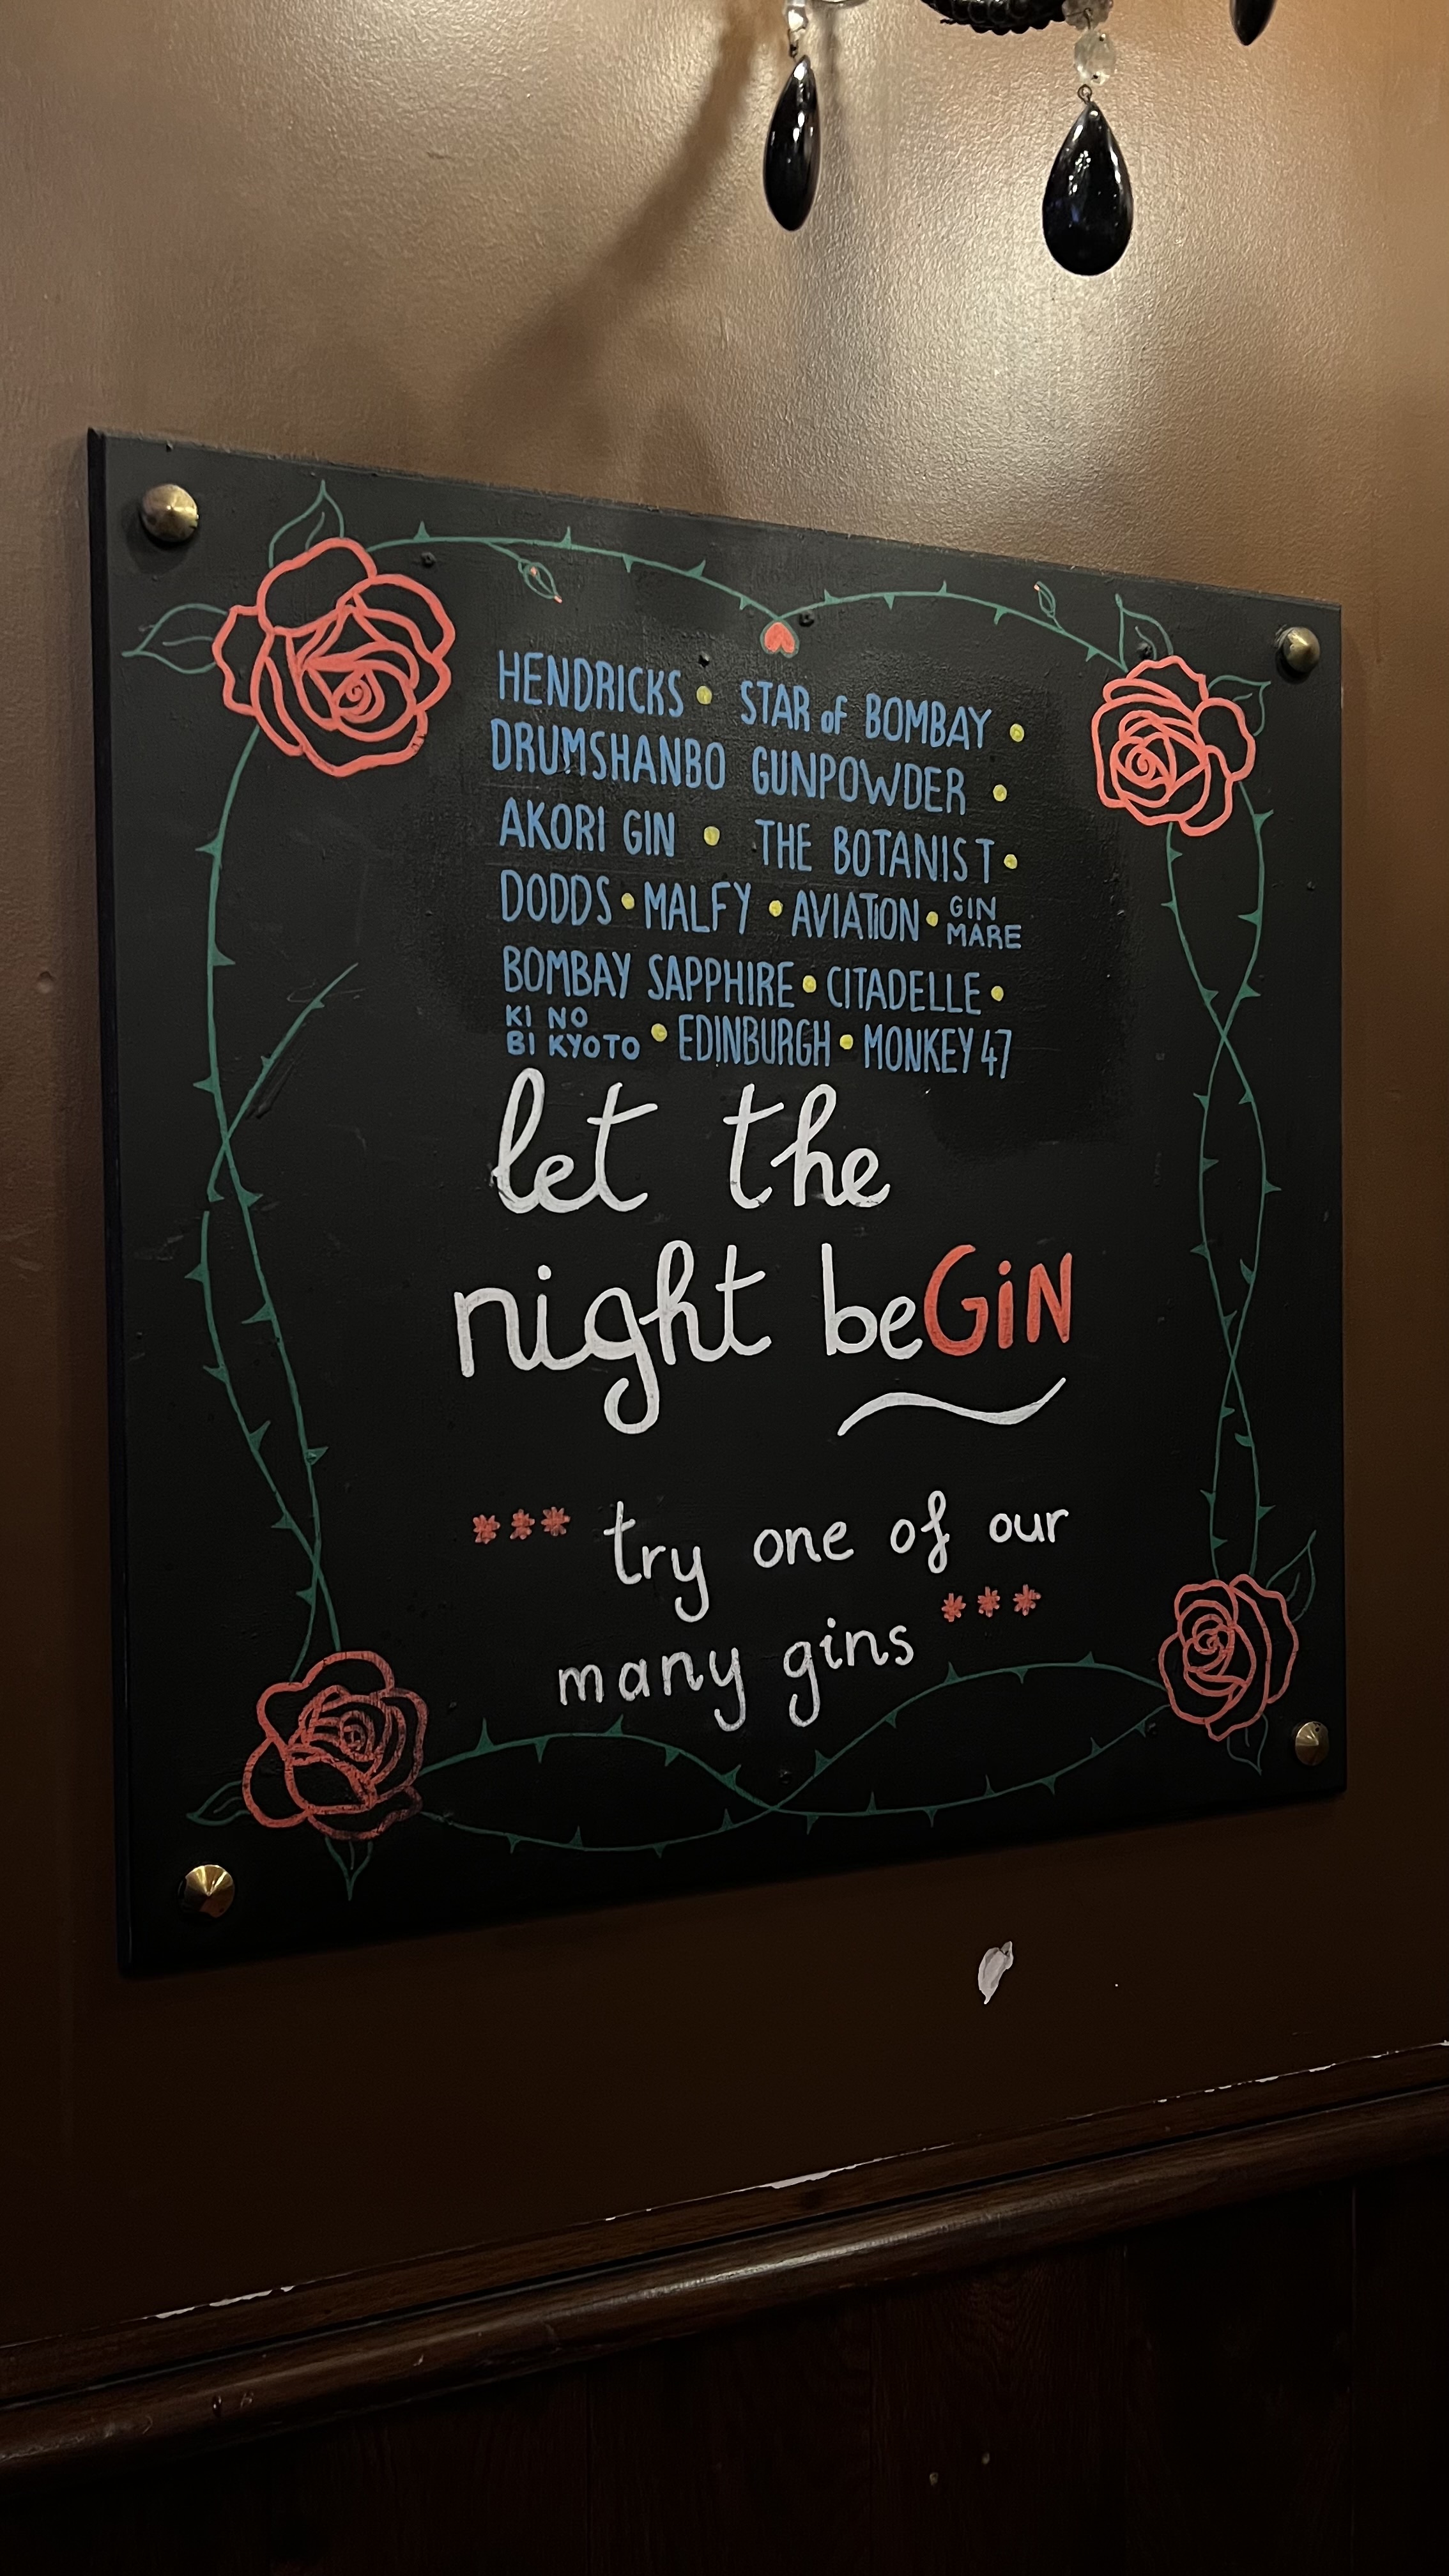 HENDRICKS • STAR of BOMBAY •
DRUMSHANBO GUNPOWDER •
AKORI GIN • THE BOTANIST •
DODDS • MALFY • AVIATION • GIN MARE
BOMBAY SAPPHIRE • CITADELLE •
KI NO BI KYOTO • EDINBURGH • MONKEY 47
let the
night beGiN
*** try one of our
many gins ***